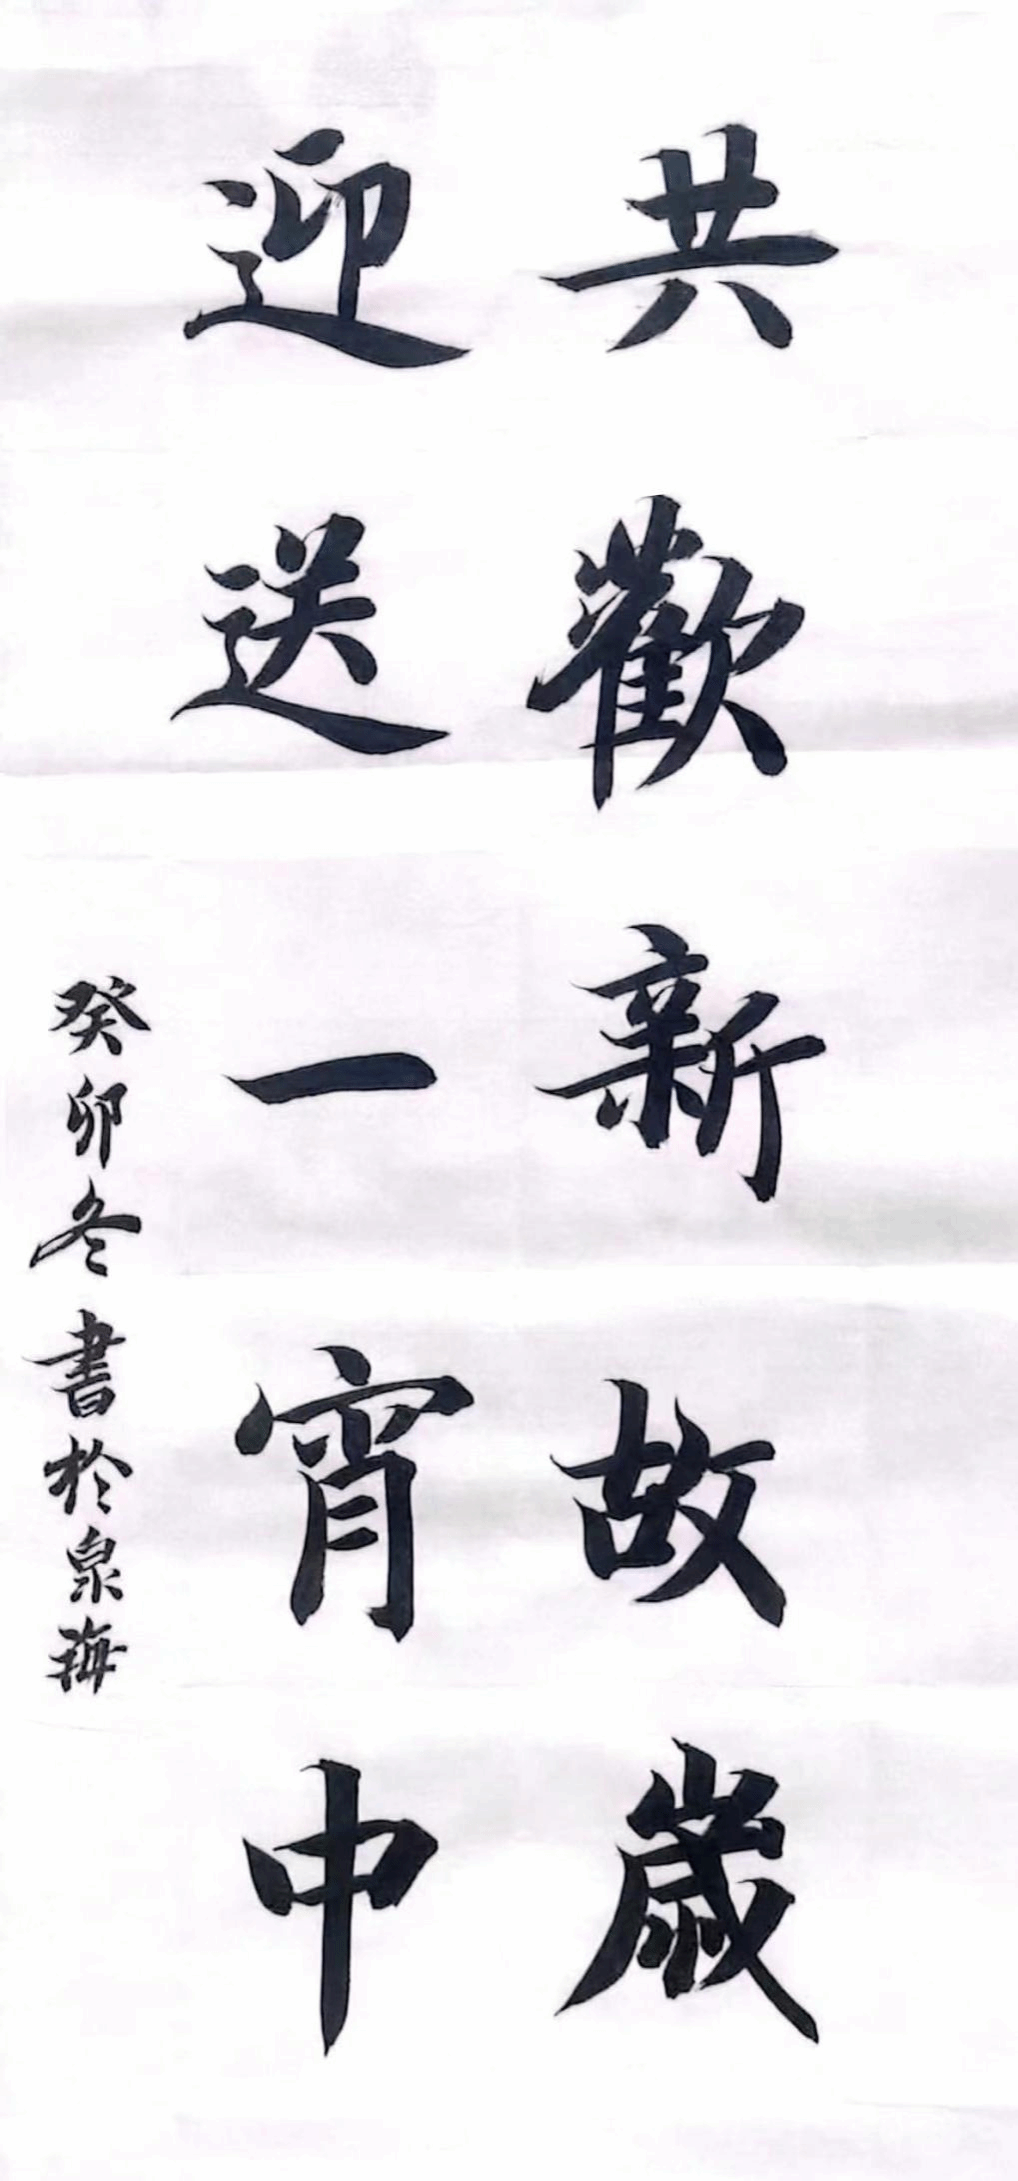 共歡新故歲
迎送一宵中
癸卯冬書於泉海